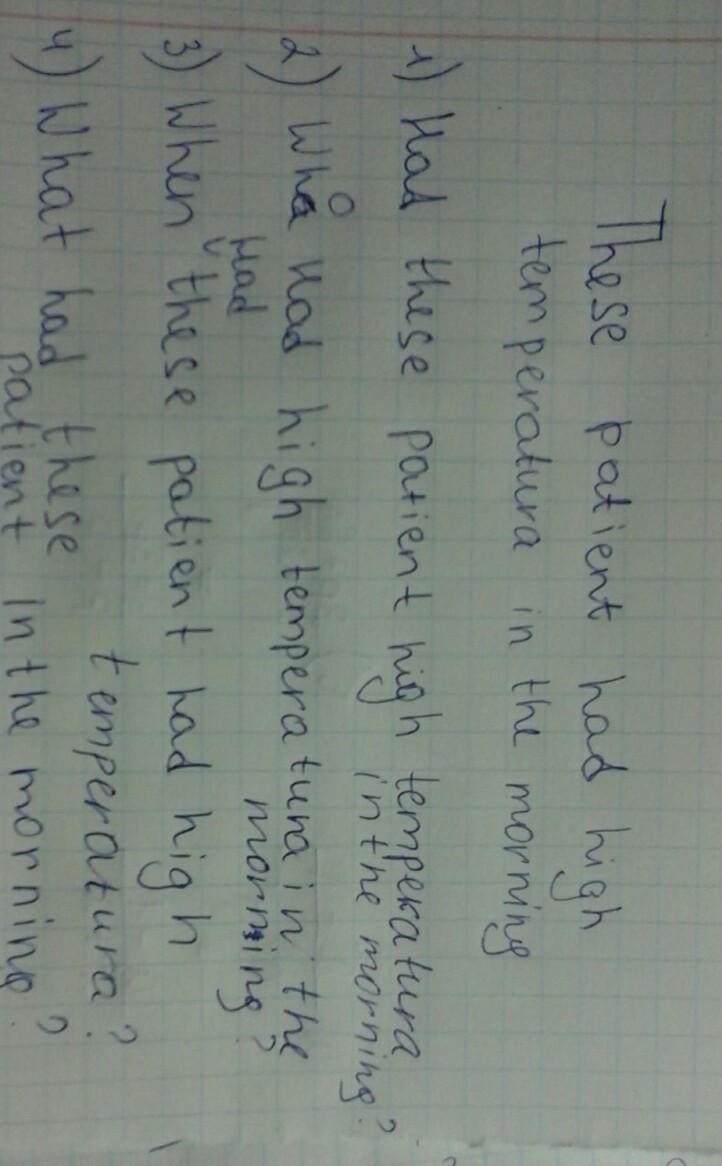 These patient had high
temperatura in the morning
1) Had these patient high temperatura
in the morning?
2) Who Had high temperatura in the
morning?
3) When Had these patient had high
temperatura?
4) What had these
patient in the morning?